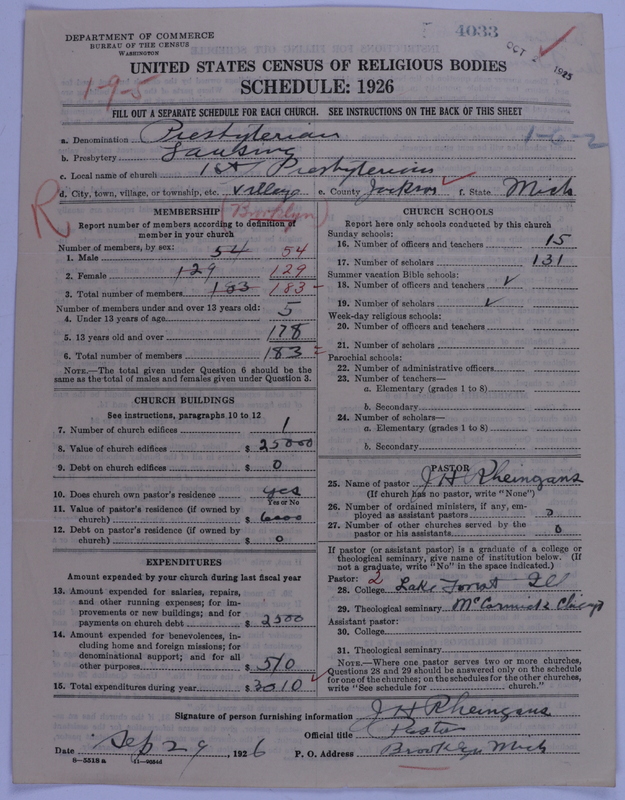 4033
DEPARTMENT OF COMMERCE
BUREAU OF THE CENSUS
WASHINGTON
OCT
UNITED STATES CENSUS OF RELIGIOUS BODIES
1-9-5
SCHEDULE: 1926
FILL OUT A SEPARATE SCHEDULE FOR EACH CHURCH. SEE INSTRUCTIONS ON THE BACK OF THIS SHEET
a. Denomination Presbyterian
1-6-2
b. Presbytery Lansing
c. Local name of church 1st Presbyterian
d. City, town, village, or township, etc. village e. County Jackson f. State Mich
R
(Brooklyn)
MEMBERSHIP
Report number of members according to definition of member in your church
Number of members, by sex:
1. Male 54 54
2. Female 129 129
3. Total number of members 183 183
Number of members under and over 13 years old:
4. Under 13 years of age 5
5. 13 years old and over 178
6. Total number of members 183
NOTE.—The total given under Question 6 should be the
same as the total of males and females given under Question 3.
CHURCH BUILDINGS
See instructions, paragraphs 10 to 12
7. Number of church edifices 1
8. Value of church edifices $ 25000
9. Debt on church edifices $ 0
10. Does church own pastor's residence yes
Yes or No
11. Value of pastor's residence (if owned by
church) $ 6000
12. Debt on pastor's residence (if owned by
church) $ 0
EXPENDITURES
Amount expended by your church during last fiscal year
13. Amount expended for salaries, repairs,
and other running expenses; for im-
provements or new buildings; and for
payments on church debt $ 2500
14. Amount expended for benevolences, in-
cluding home and foreign missions; for
denominational support; and for all
other purposes $ 510
15. Total expenditures during year $ 3010
CHURCH SCHOOLS
Report here only schools conducted by this church
Sunday schools:
16. Number of officers and teachers 15
17. Number of scholars 131
Summer vacation Bible schools:
18. Number of officers and teachers
19. Number of scholars
Week-day religious schools:
20. Number of officers and teachers
21. Number of scholars
Parochial schools:
22. Number of administrative officers
23. Number of teachers—
a. Elementary (grades 1 to 8)
b. Secondary
24. Number of scholars—
a. Elementary (grades 1 to 8)
b. Secondary
PASTOR
25. Name of pastor J H Rheingans
(If church has no pastor, write "None")
26. Number of ordained ministers, if any, em-
ployed as assistant pastors 0
27. Number of other churches served by the
pastor or his assistants 0
If pastor (or assistant pastor) is a graduate of a college or
theological seminary, give name of institution below. (If
not a graduate, write "No" in the space indicated.)
Pastor: 2
28. College Lake Forest Ill
29. Theological seminary McCormick Chicago
Assistant pastor:
30. College
31. Theological seminary
NOTE.—Where one pastor serves two or more churches,
Questions 28 and 29 should be answered only on the schedule
for one of the churches; on the schedules for the other churches,
write "See schedule for church."
Signature of person furnishing information J H Rheingans
Official title Pastor
Date Sep 29, 1926 P. O. Address Brooklyn Mich
8—5518 a